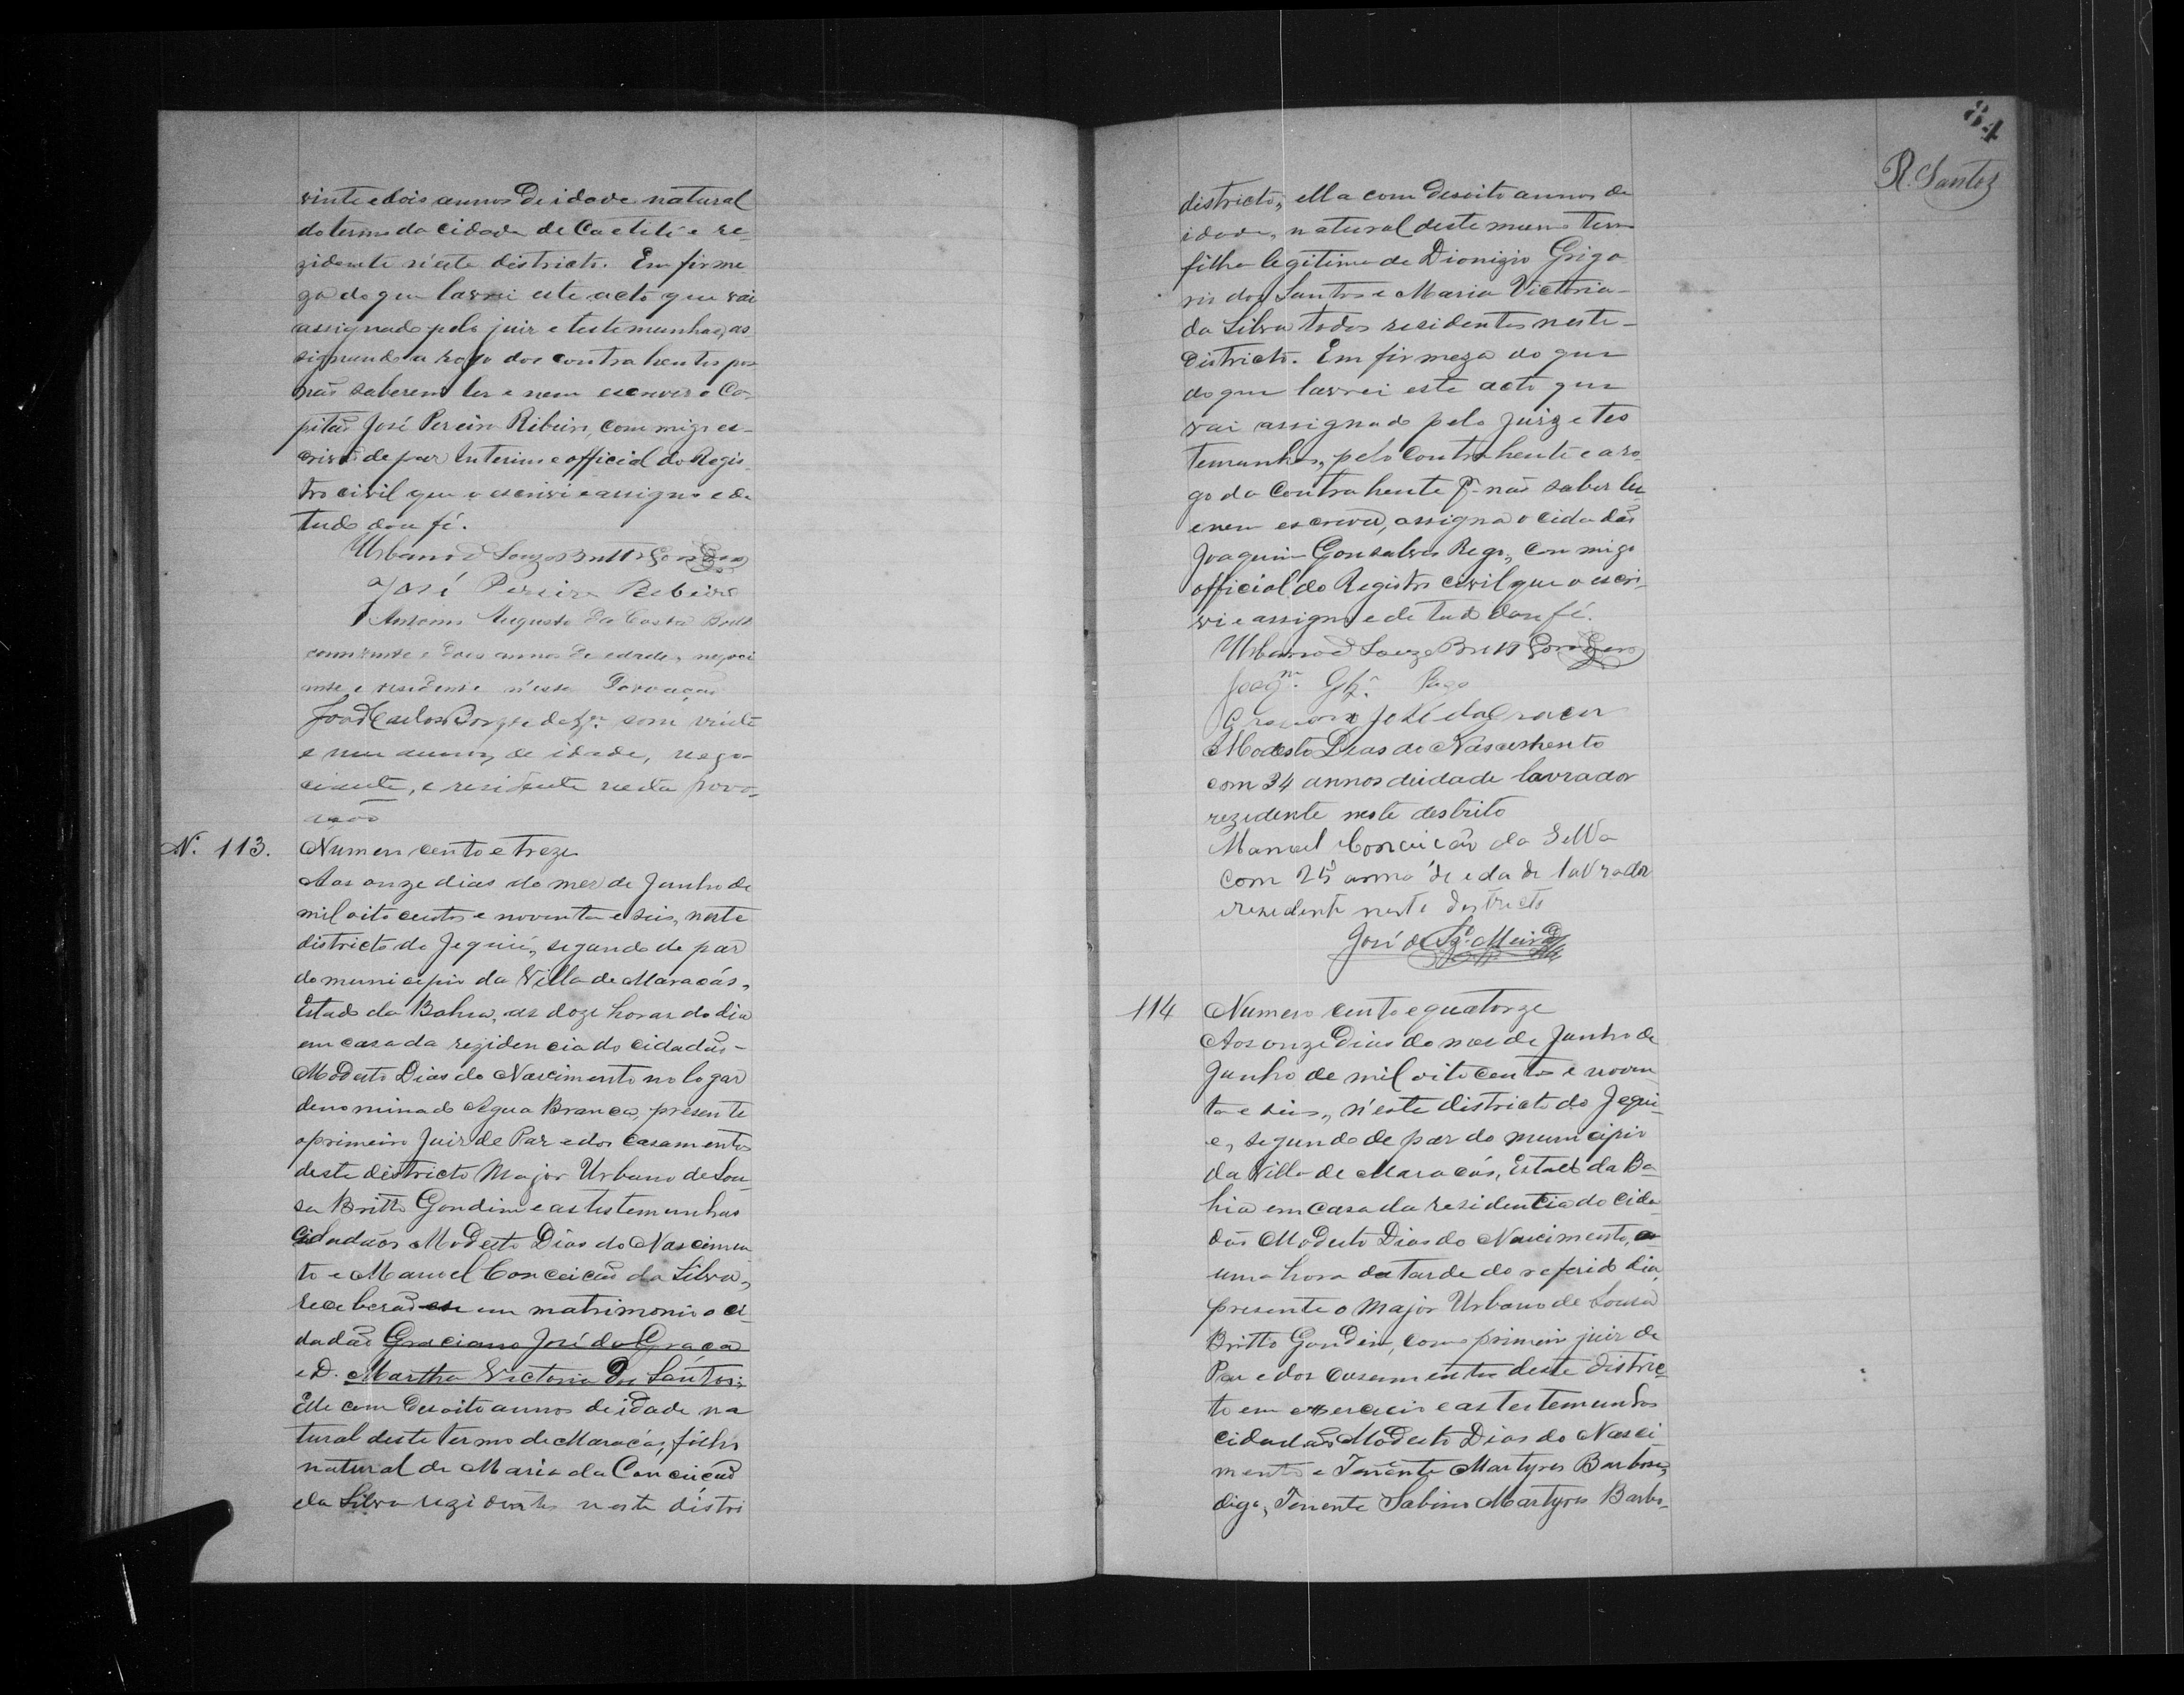 vinte e dois annos de idade natural
do termo da cidade de Caetité e re-
zidente n'este districto. Em firme
za do que lavrei este acto que vai
assignado pelo juiz e testemunhas, as
signando a rogo dos contrahentes por
não saberem ler e nem escrever o Ca-
pitão José Pereira Ribeiro, commigo es-
crivão de paz interino e official do Regis-
tro civil que o escrivi e assigno e de
tudo dou fé.
Urbano d Souza Britto Gondim
José Pereira Ribeiro
Antonio Augusto da Costa Britto
com vinte e dois annos de edade, negoci
ante e residente n'esta Povoação
João Carlos Borges de com vinte
e um annos de idade, nego-
ciante, e residente nesta povo-
ação
N. 113. Numero cento e treze
Aos onze dias do mez de Junho de
mil oito centos e noventa e seis, neste
districto de Jequié, segundo de paz
do municipio da Villa de Maracás,
Estado da Bahia, as doze horas do dia
em casa da rezidencia do cidadão-
Modesto Dias do Nascimento no logar
denominado Agua Branca, presente
o primeiro Juiz de Paz e dos casamentos
deste districto Major Urbano de Sou-
za Britto Gondim e as testemunhas
Cidadãos Modesto Dias do Nascimen
to e Manoel Conceicão da Silva,
receberão-se em matrimonio o ci-
dadão Graciano José da Graça
e D. Martha Victoria dos Santos;
Elle com desoito annos de idade na
tural deste termo de Maracás, filho
natural de Maria da Conceicão
da Silva rezidentes neste distri
84
R. Santos
districto, ella com desoito annos de
idade, natural deste mesmo termo
filha legitima de Dionizio Grigo
rio dos Santos e Maria Victoria-
da Silva todos residentes neste-
Districto. Em firmeza do que
do que lavrei este acto que
vai assignado pelo Juiz e tes
temunhas, pelo Contrahente e a ro-
go da Contrahente pr. não saber ler
e nem escrever, assigna o cidadão
Joaquim Gonsalves Rego, commigo
official do Registro civil que o escri-
vi e assigno e de tudo dou fé.
Urbano d Souza Britto Gondim
Joaqm. Glz. Rego
Graciano José da Graca
Modesto Dias do Nascimento
com 34 annos deidade lavrador
rezidente neste destrito
Manoel Conceicão da Selva
com 25 anno de edade lavrador
erezedente neste destricto
José de Sza. Meira
114 Numero cento e quatorze
Aos onze Dias do mez de Junho de
Junho de mil oito centos e noven
ta e seis, n'este districto do Jequi-
é, segundo de paz do municipio
da Villa de Maracás, Estado da Ba
hia em casa da residentia do Cida
dão Modesto Dias do Nascimento, a
uma hora da tarde do referido dia,
presente o Major Urbano de Sousa
Britto Gondim, como primeiro juiz de
Paz e dos casamentos deste distric
to em exercicio e as testemunhas
cidadãos Modesto Dias do Nasci-
mento e Tenente Martyres Barbosa,
digo, Tenente Sabino Martyres Barbo-